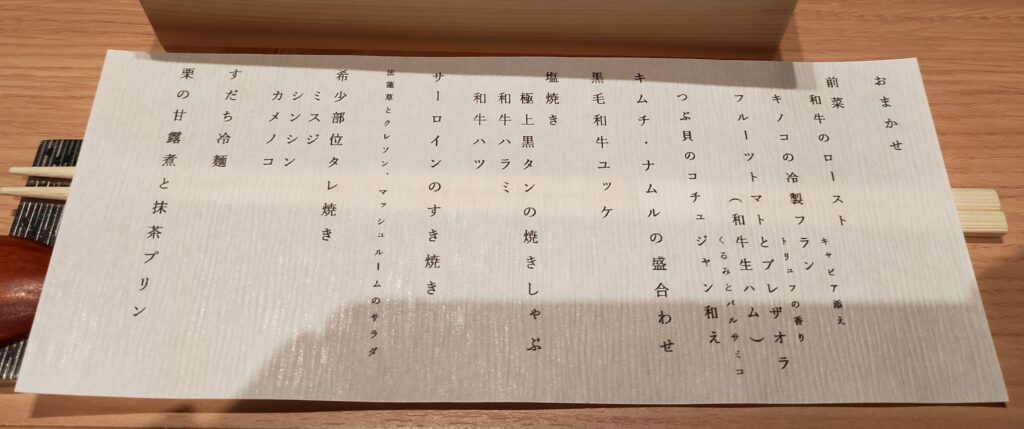 おまかせ
前菜
和牛のロースト
キャビア添え
キノコの冷製フラン
トリュフの香り
フルーツトマトとブレザオラ
(和牛生ハム)
くるみとバルサミコ
つぶ貝のコチュジャン和え
キムチ・ナムルの盛合わせ
黒毛和牛ユッケ
塩焼き
極上黒タンの焼きしゃぶ
和牛ハラミ
和牛ハツ
サーロインのすき焼き
法蓮草とクレソン、マッシュルームのサラダ
希少部位タレ焼き
ミスジ
シンシン
カメノコ
すだち冷麺
栗の甘露煮と抹茶プリン